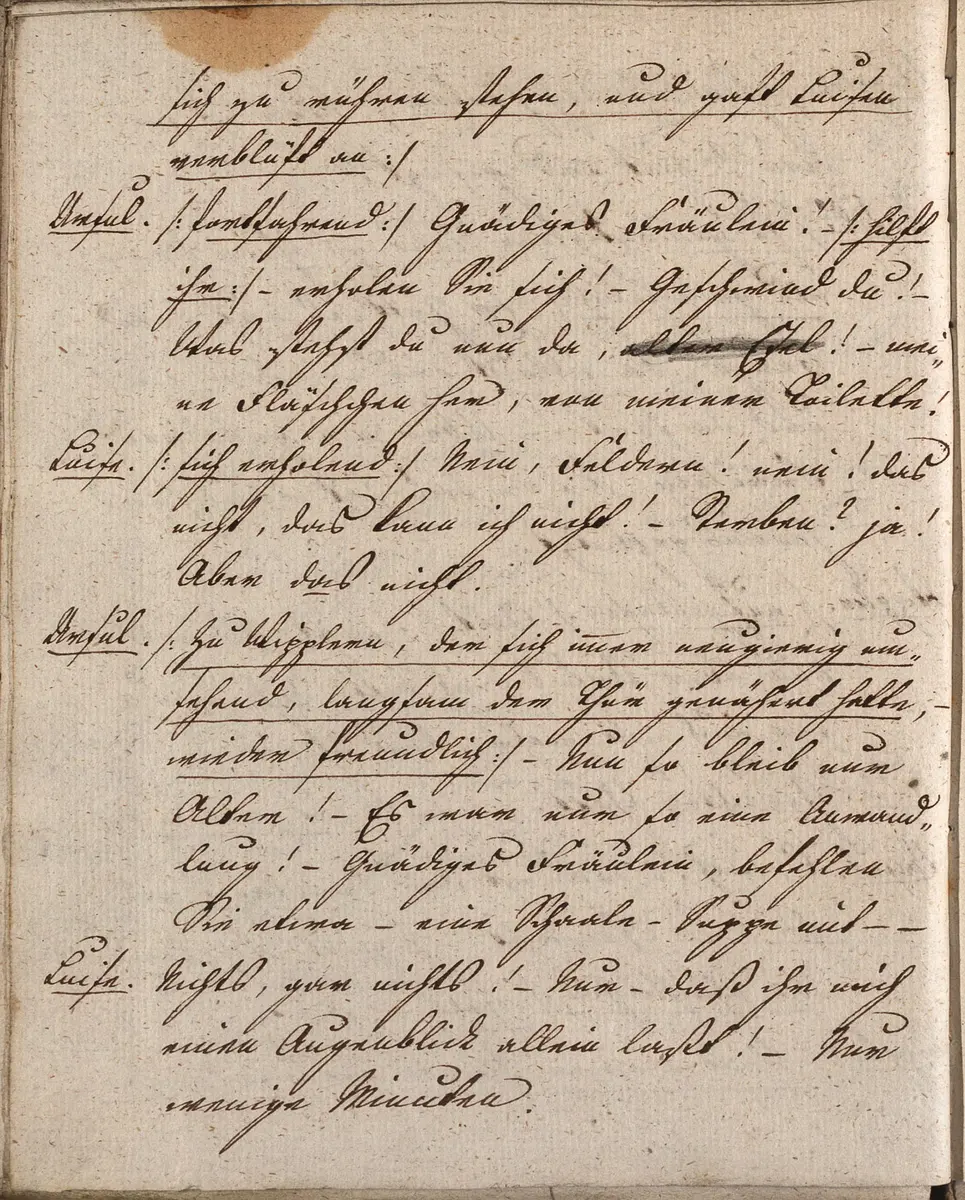 sich zu rühren stehen, und gaft Luisen
verblüft an :/
Ursul. /: fortfahrend :/ Gnädiges Fräulein! – /: hilft
ihr :/ – erholen Sie sich! – Geschwind du! –
Was stehst du nun da, alter Esel! – mei„
ne Fläschchen her, von meiner Toilette!
Luise. /: sich erholend :/ Nein, Feldern! nein! das
nicht, das kann ich nicht! – Sterben? ja!
Aber das nicht.
Ursul. /: Zu Wipplern, der sich immer neugierig um„
sehend, langsam der Thür genähert hatte, –
wieder freundlich :/ – Nun so bleib nur
Alter! – Es war nur so eine Anwand„
lung! – Gnädiges Fräulein, befehlen
Sie etwa – eine Schaale – Suppe mit – –
Luise. Nichts, gar nichts! – Nur – daß ihr mich
einen Augenblick allein laßt! – Nur
wenige Minuten.